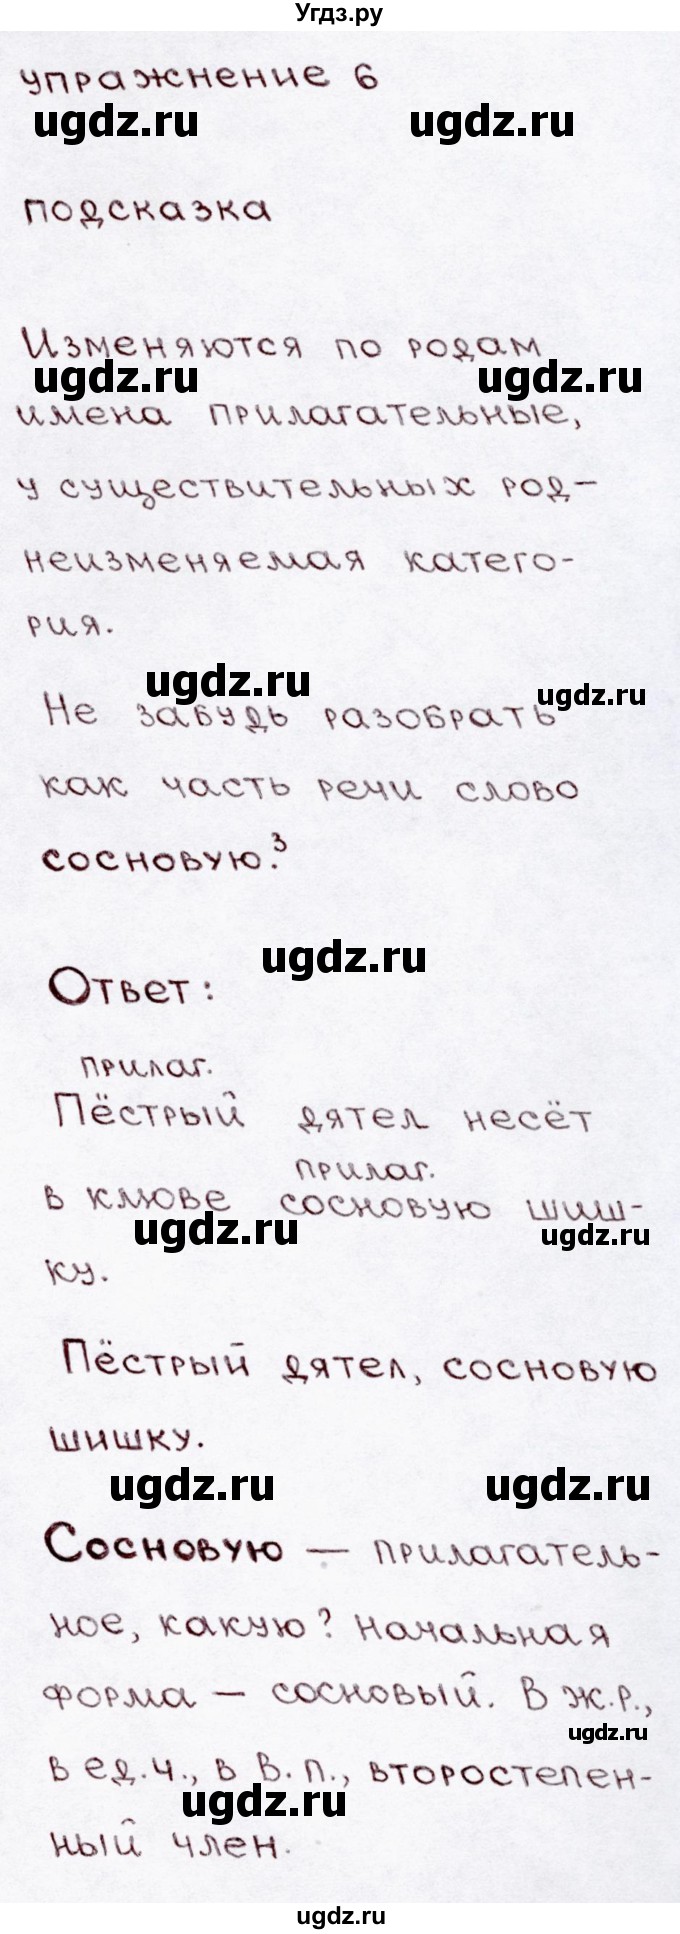 Угдз.ру
упражнение 6
ugdz.ru ugdz.ru
подсказка
Изменяются по родам
ugdz.ru ugdz.ru
имена прилагательные,
у существительных род-
неизменяемая катего-
рия.
ugdz.ru ugdz.ru
Не забудь разобрать
как часть речи слово
сосновую.³
ugdz.ru
Ответ:
прилаг.
Пёстрый дятел несёт
прилаг.
в клюве сосновую шиш-
ugdz.ru ugdz.ru
ку.
Пёстрый дятел, сосновую
шишку.
ugdz.ru ugdz.ru
Сосновую — прилагатель-
ное, какую? Начальная
форма – сосновый. В ж.р.,
ugdz.ru
в ед.ч., в В.п., второстепен-
ugdz.ru
ный член.
ugdz.ru